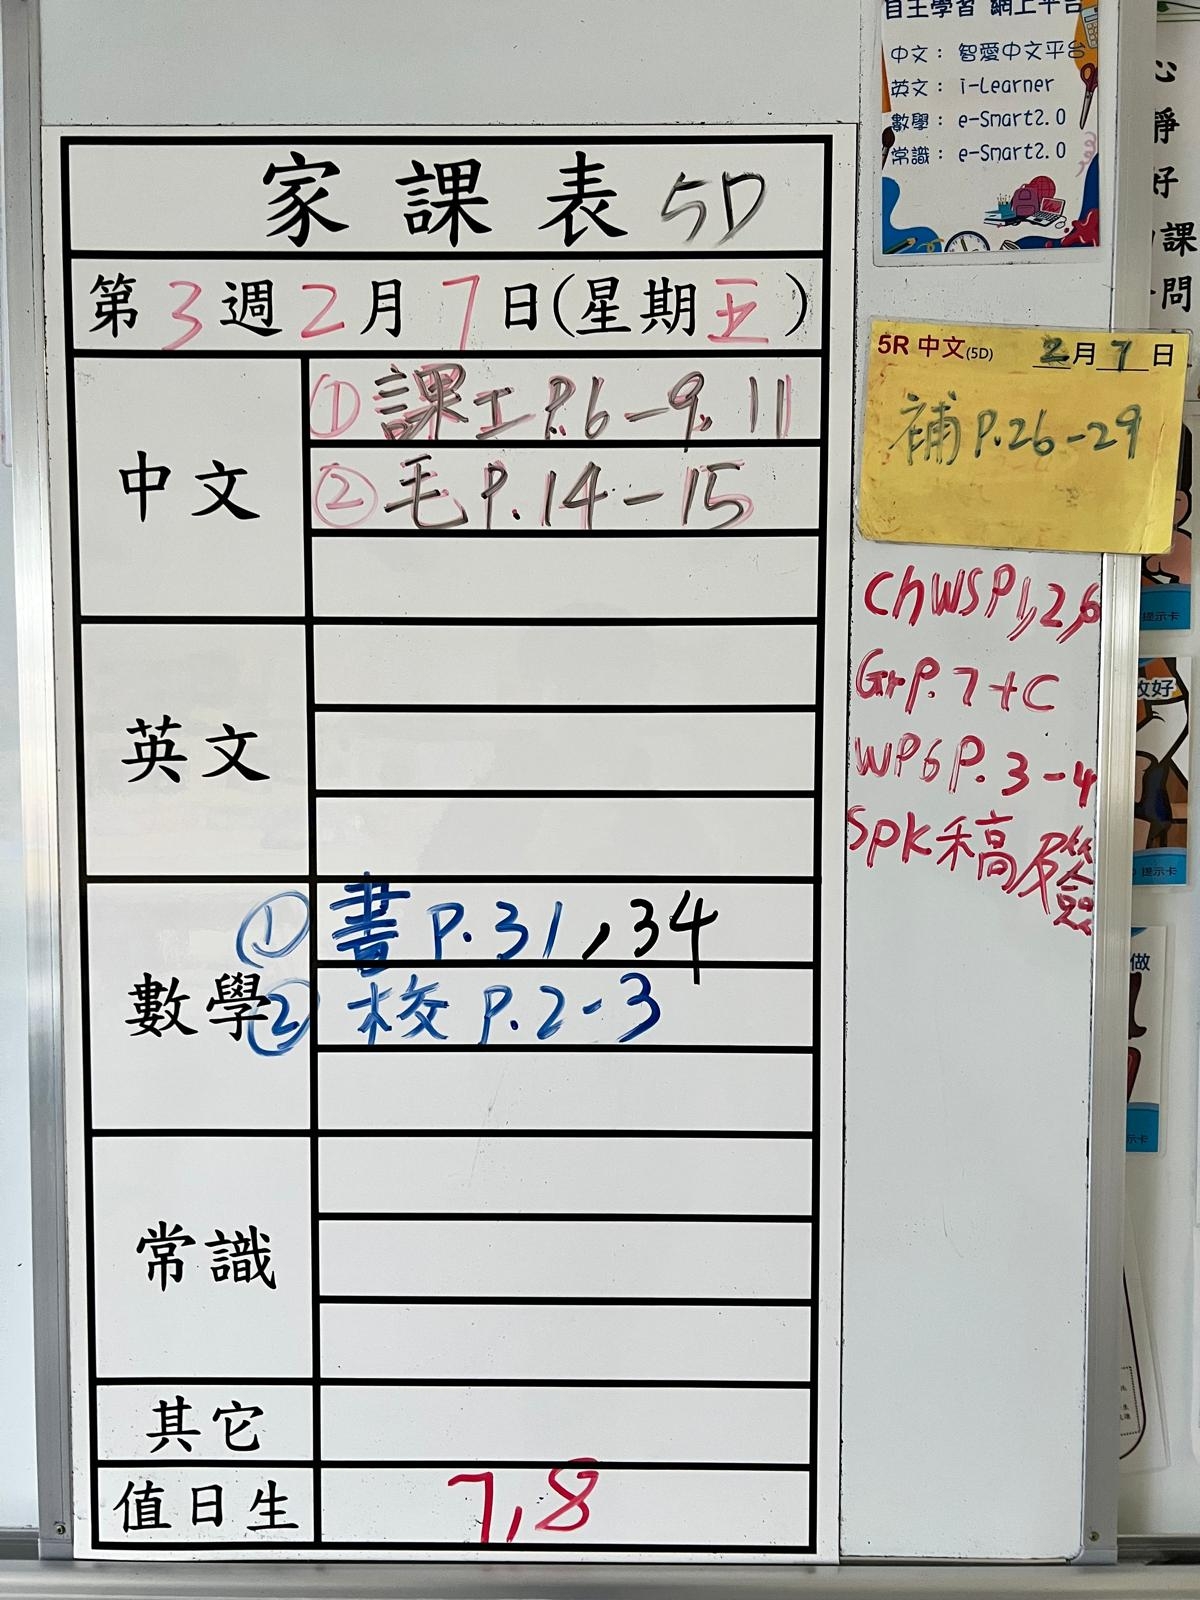 家課表 5D
第3週2月7日(星期五)
中文
① 課工 P.6-9, 11
② 毛 P.14-15
英文
數學
① 書 P.31,34
② 校 P.2-3
常識
其它
值日生
7,8
自主學習 網上平台
中文：智愛中文平台
英文：i-Learner
數學：e-Smart2.0
常識：e-Smart2.0
5R 中文(5D) 2月7日
補 P.26-29
ChWS P1,2,6
Gr P.7+C
WP6 P.3-4
SPK 稿及簽
心
靜
好
課
問
提示卡
改好
提示卡
做
示卡